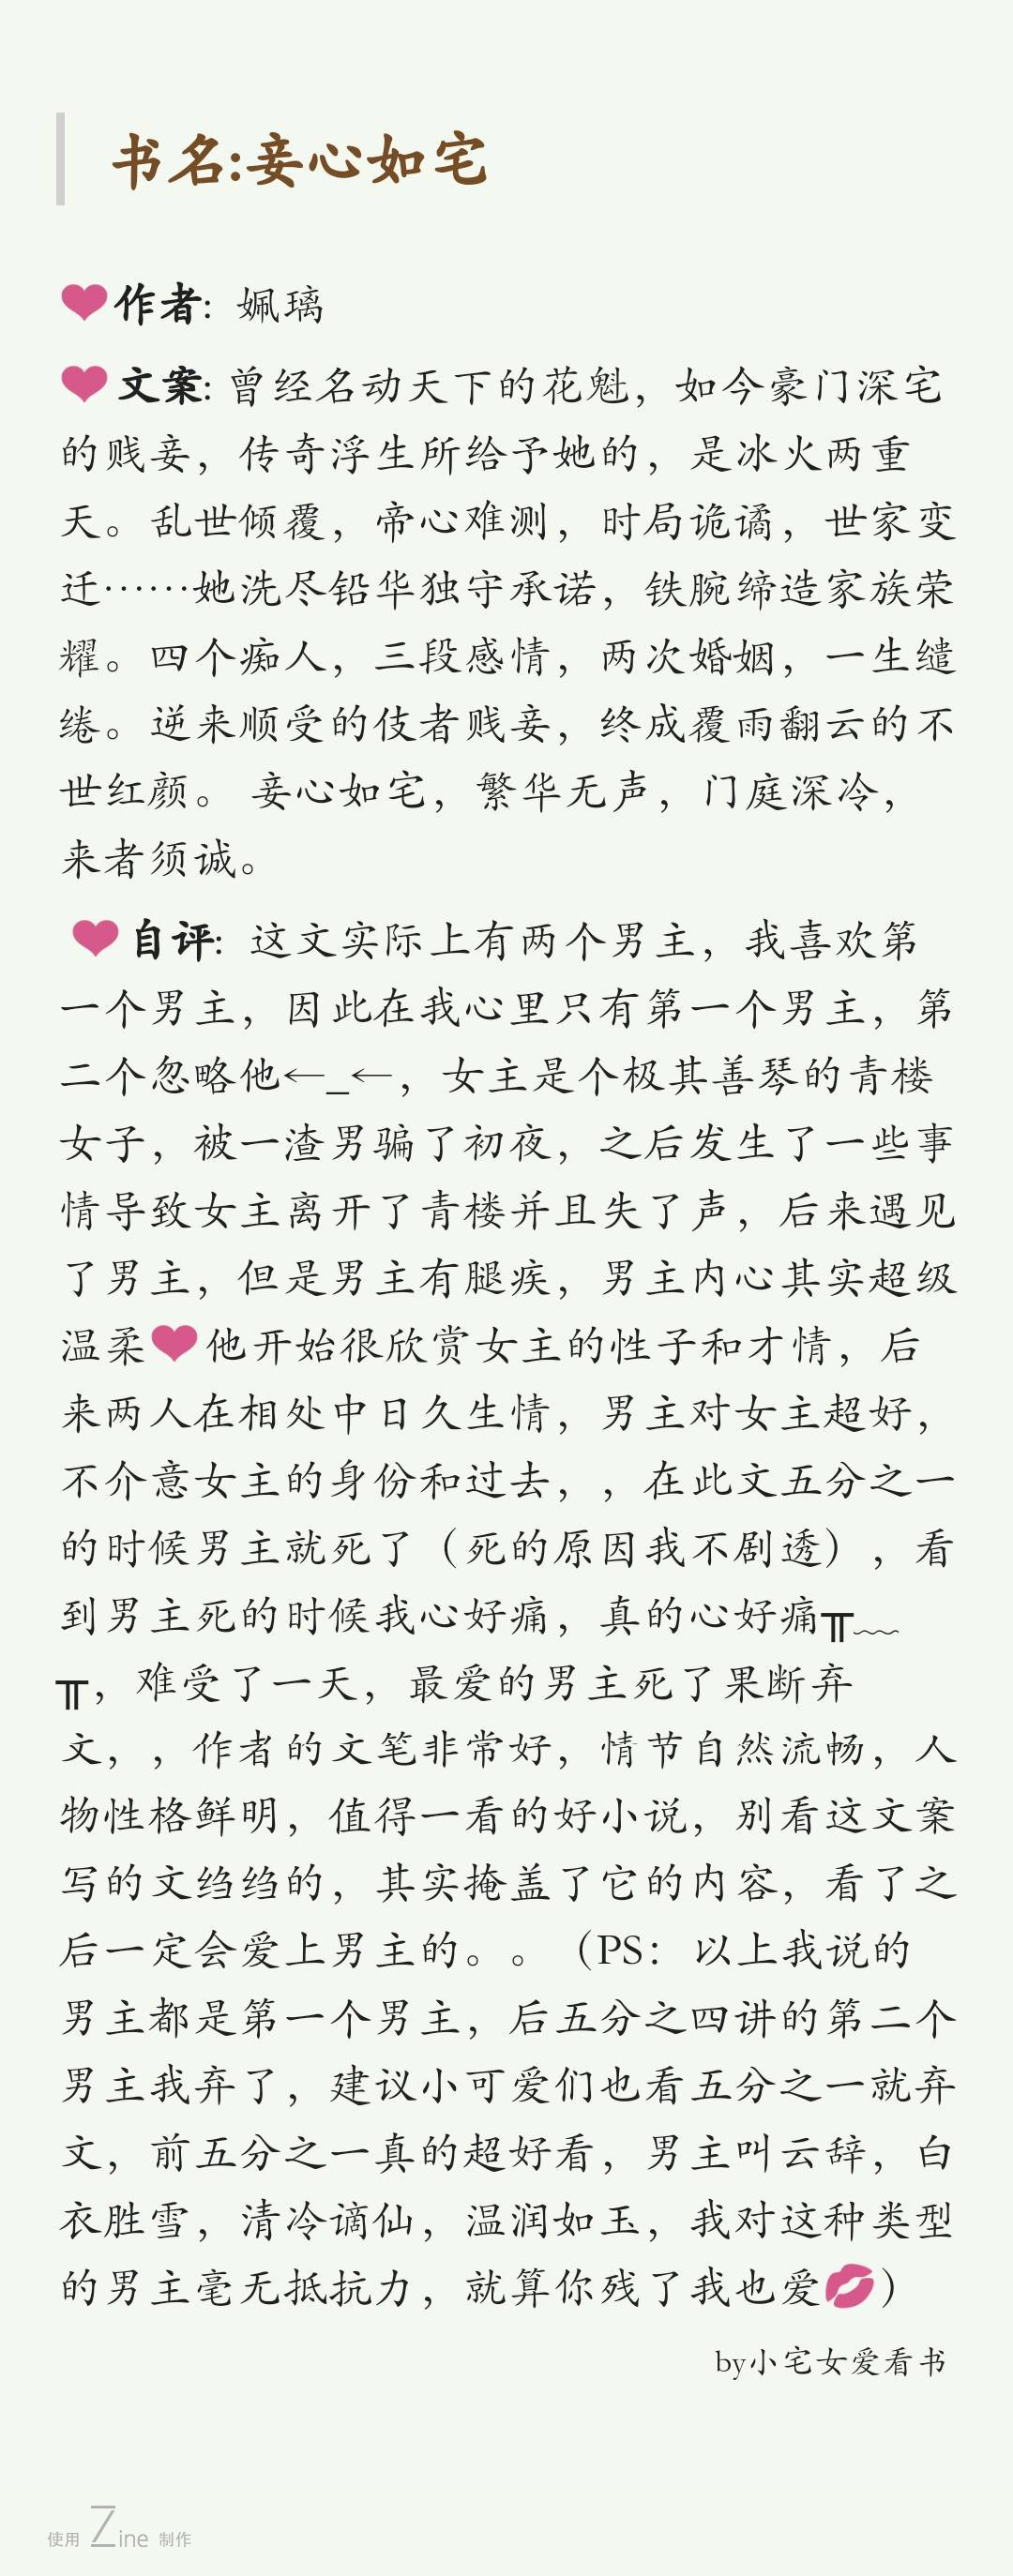 书名:妾心如宅
❤作者: 姵璃
❤文案: 曾经名动天下的花魁，如今豪门深宅
的贱妾，传奇浮生所给予她的，是冰火两重
天。乱世倾覆，帝心难测，时局诡谲，世家变
迁……她洗尽铅华独守承诺，铁腕缔造家族荣
耀。四个痴人，三段感情，两次婚姻，一生缱
绻。逆来顺受的伎者贱妾，终成覆雨翻云的不
世红颜。 妾心如宅，繁华无声，门庭深冷，
来者须诚。
❤自评: 这文实际上有两个男主，我喜欢第
一个男主，因此在我心里只有第一个男主，第
二个忽略他←_←，女主是个极其善琴的青楼
女子，被一渣男骗了初夜，之后发生了一些事
情导致女主离开了青楼并且失了声，后来遇见
了男主，但是男主有腿疾，男主内心其实超级
温柔❤他开始很欣赏女主的性子和才情，后
来两人在相处中日久生情，男主对女主超好，
不介意女主的身份和过去，，在此文五分之一
的时候男主就死了（死的原因我不剧透），看
到男主死的时候我心好痛，真的心好痛╥﹏
╥，难受了一天，最爱的男主死了果断弃
文，，作者的文笔非常好，情节自然流畅，人
物性格鲜明，值得一看的好小说，别看这文案
写的文绉绉的，其实掩盖了它的内容，看了之
后一定会爱上男主的。。（PS： 以上我说的
男主都是第一个男主，后五分之四讲的第二个
男主我弃了，建议小可爱们也看五分之一就弃
文，前五分之一真的超好看，男主叫云辞，白
衣胜雪，清冷谪仙，温润如玉，我对这种类型
的男主毫无抵抗力，就算你残了我也爱💋）
by小宅女爱看书
使用 Zine 制作